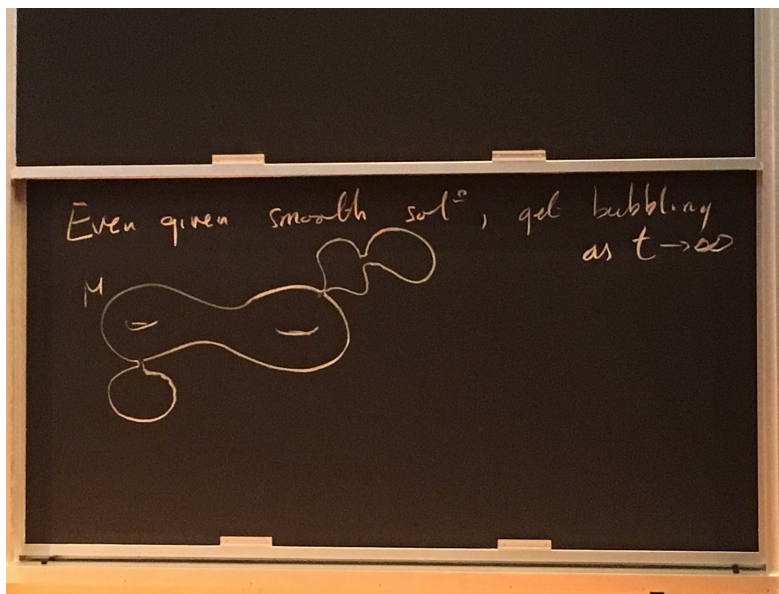 Even given smooth solⁿ, get bubbling
as t→∞
M